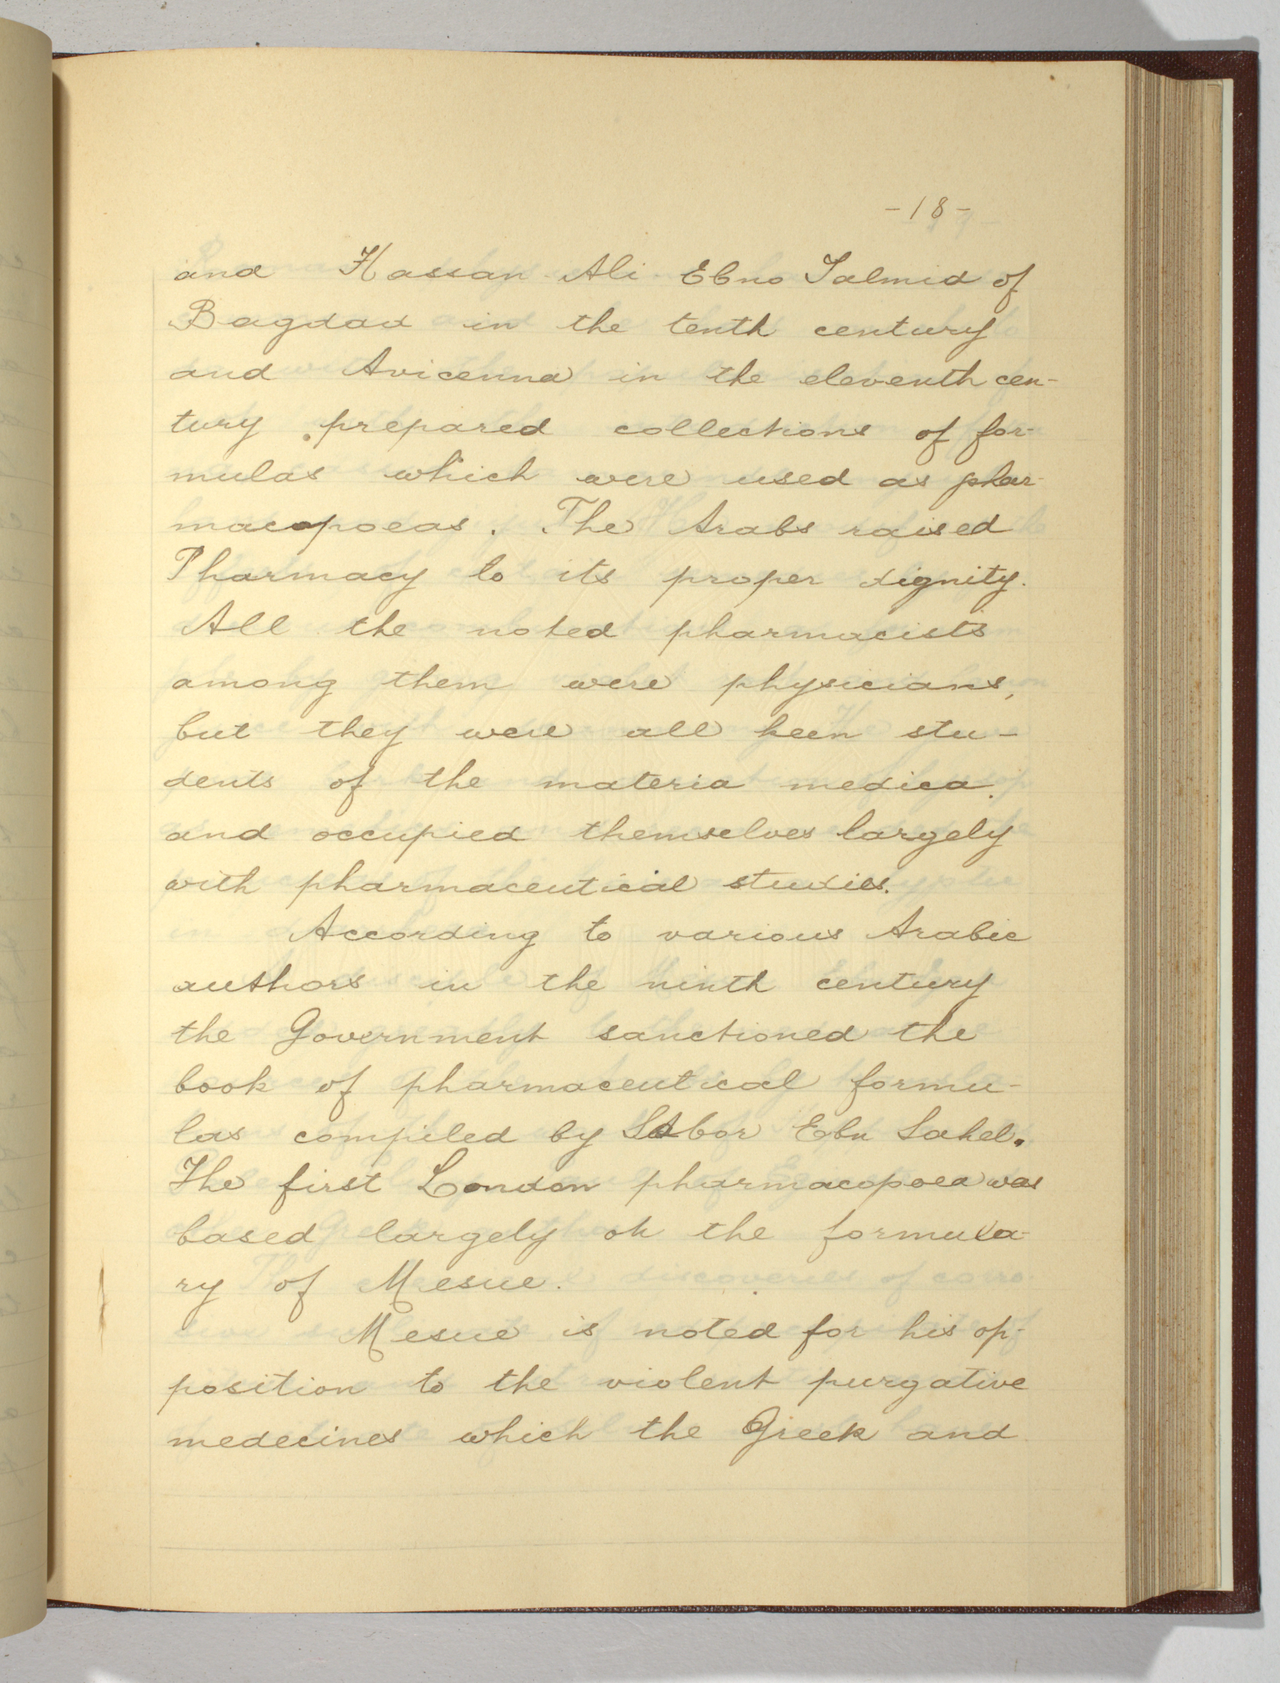 -18-
and Hassan Ali Ebno Talmid of
Bagdad in the tenth century
and Avicenna in the eleventh cen-
tury prepared collections of for-
mulas which were used as phar-
macopoeas. The Arabs raised
Pharmacy to its proper dignity.
All the noted pharmacists
among them were physicians,
but they were all keen stu-
dents of the materia medica.
and occupied themselves largely
with pharmaceutical studies.
According to various Arabic
authors in the ninth century
the Government sanctioned the
book of pharmaceutical formu-
las compiled by Sabor Ebn Sahel.
The first London pharmacopoea was
based largely on the formula-
ry of Mesue.
Mesue is noted for his op-
position to the violent purgative
medecines which the Greek and